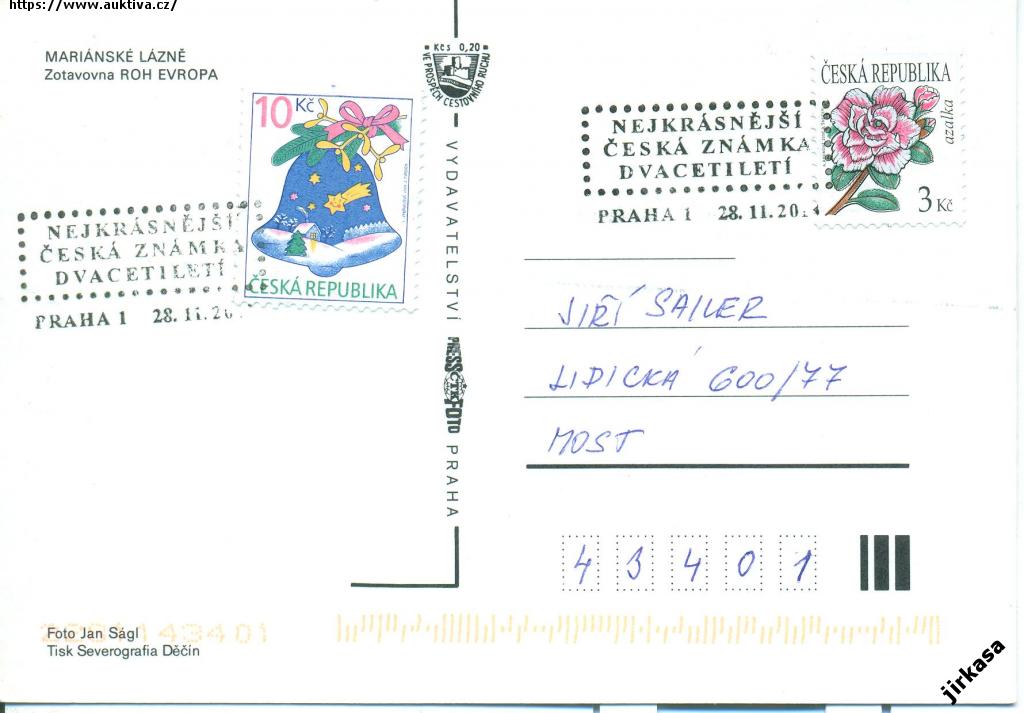 https://www.auktiva.cz/
MARIÁNSKÉ LÁZNĚ
Zotavovna ROH EVROPA
Kčs 0,20
VE PROSPĚCH CESTOVNÍHO RUCHU
10 Kč
ČESKÁ REPUBLIKA
NEJKRÁSNĚJŠÍ
ČESKÁ ZNÁMKA
DVACETILETÍ
PRAHA 1 28.11.20
VYDAVATELSTVÍ
PRESSFOTO
ČTK
PRAHA
ČESKÁ REPUBLIKA
azalka
3 Kč
NEJKRÁSNĚJŠÍ
ČESKÁ ZNÁMKA
DVACETILETÍ
PRAHA 1 28.11.20
JIŘÍ SAILER
LIDICKÁ 600/77
MOST
43401
Foto Jan Ságl
Tisk Severografia Děčín
jirkasa